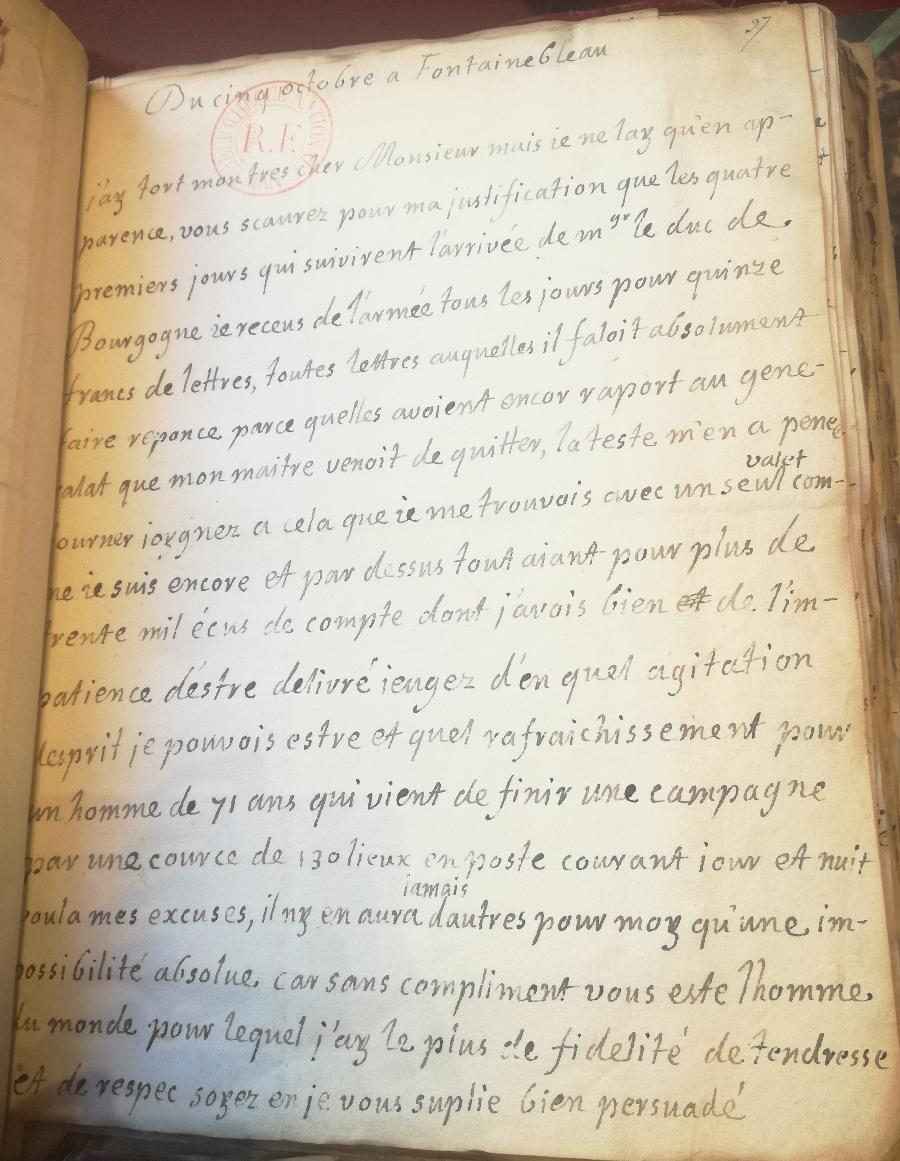 97
Du cinq octobre a Fontainebleau
R.F.
j'ay tort mon tres cher Monsieur mais ie ne lay qu'en ap-
parence, vous scaurez pour ma justification que les quatre
premiers jours qui suivirent l'arrivée de mgr le duc de
Bourgogne ie receus de l'armée tous les jours pour quinze
francs de lettres, toutes lettres auquelles il faloit absolument
faire reponce parce quelles avoient encor raport au gene-
ralat que mon maitre venoit de quitter, la teste m'en a pencé
tourner ioygnez a cela que ie me trouvois avec un seul valet com-
me ie suis encore et par dessus tout aiant pour plus de
trente mil écus de compte dont j'avois bien et de l'im-
patience déstre delivré ieugez d'en quel agitation
desprit je pouvois estre et quel rafraichissement pour
un homme de 71 ans qui vient de finir une campagne
par une cource de 130 lieux en poste courant iour et nuit
voula mes excuses, il ny en aura iamais dautres pour moy qu'une im-
possibilité absolue car sans compliment vous este lhomme
du monde pour lequel j'ay le plus de fidelité de tendresse
et de respec soyez en je vous suplie bien persuadé